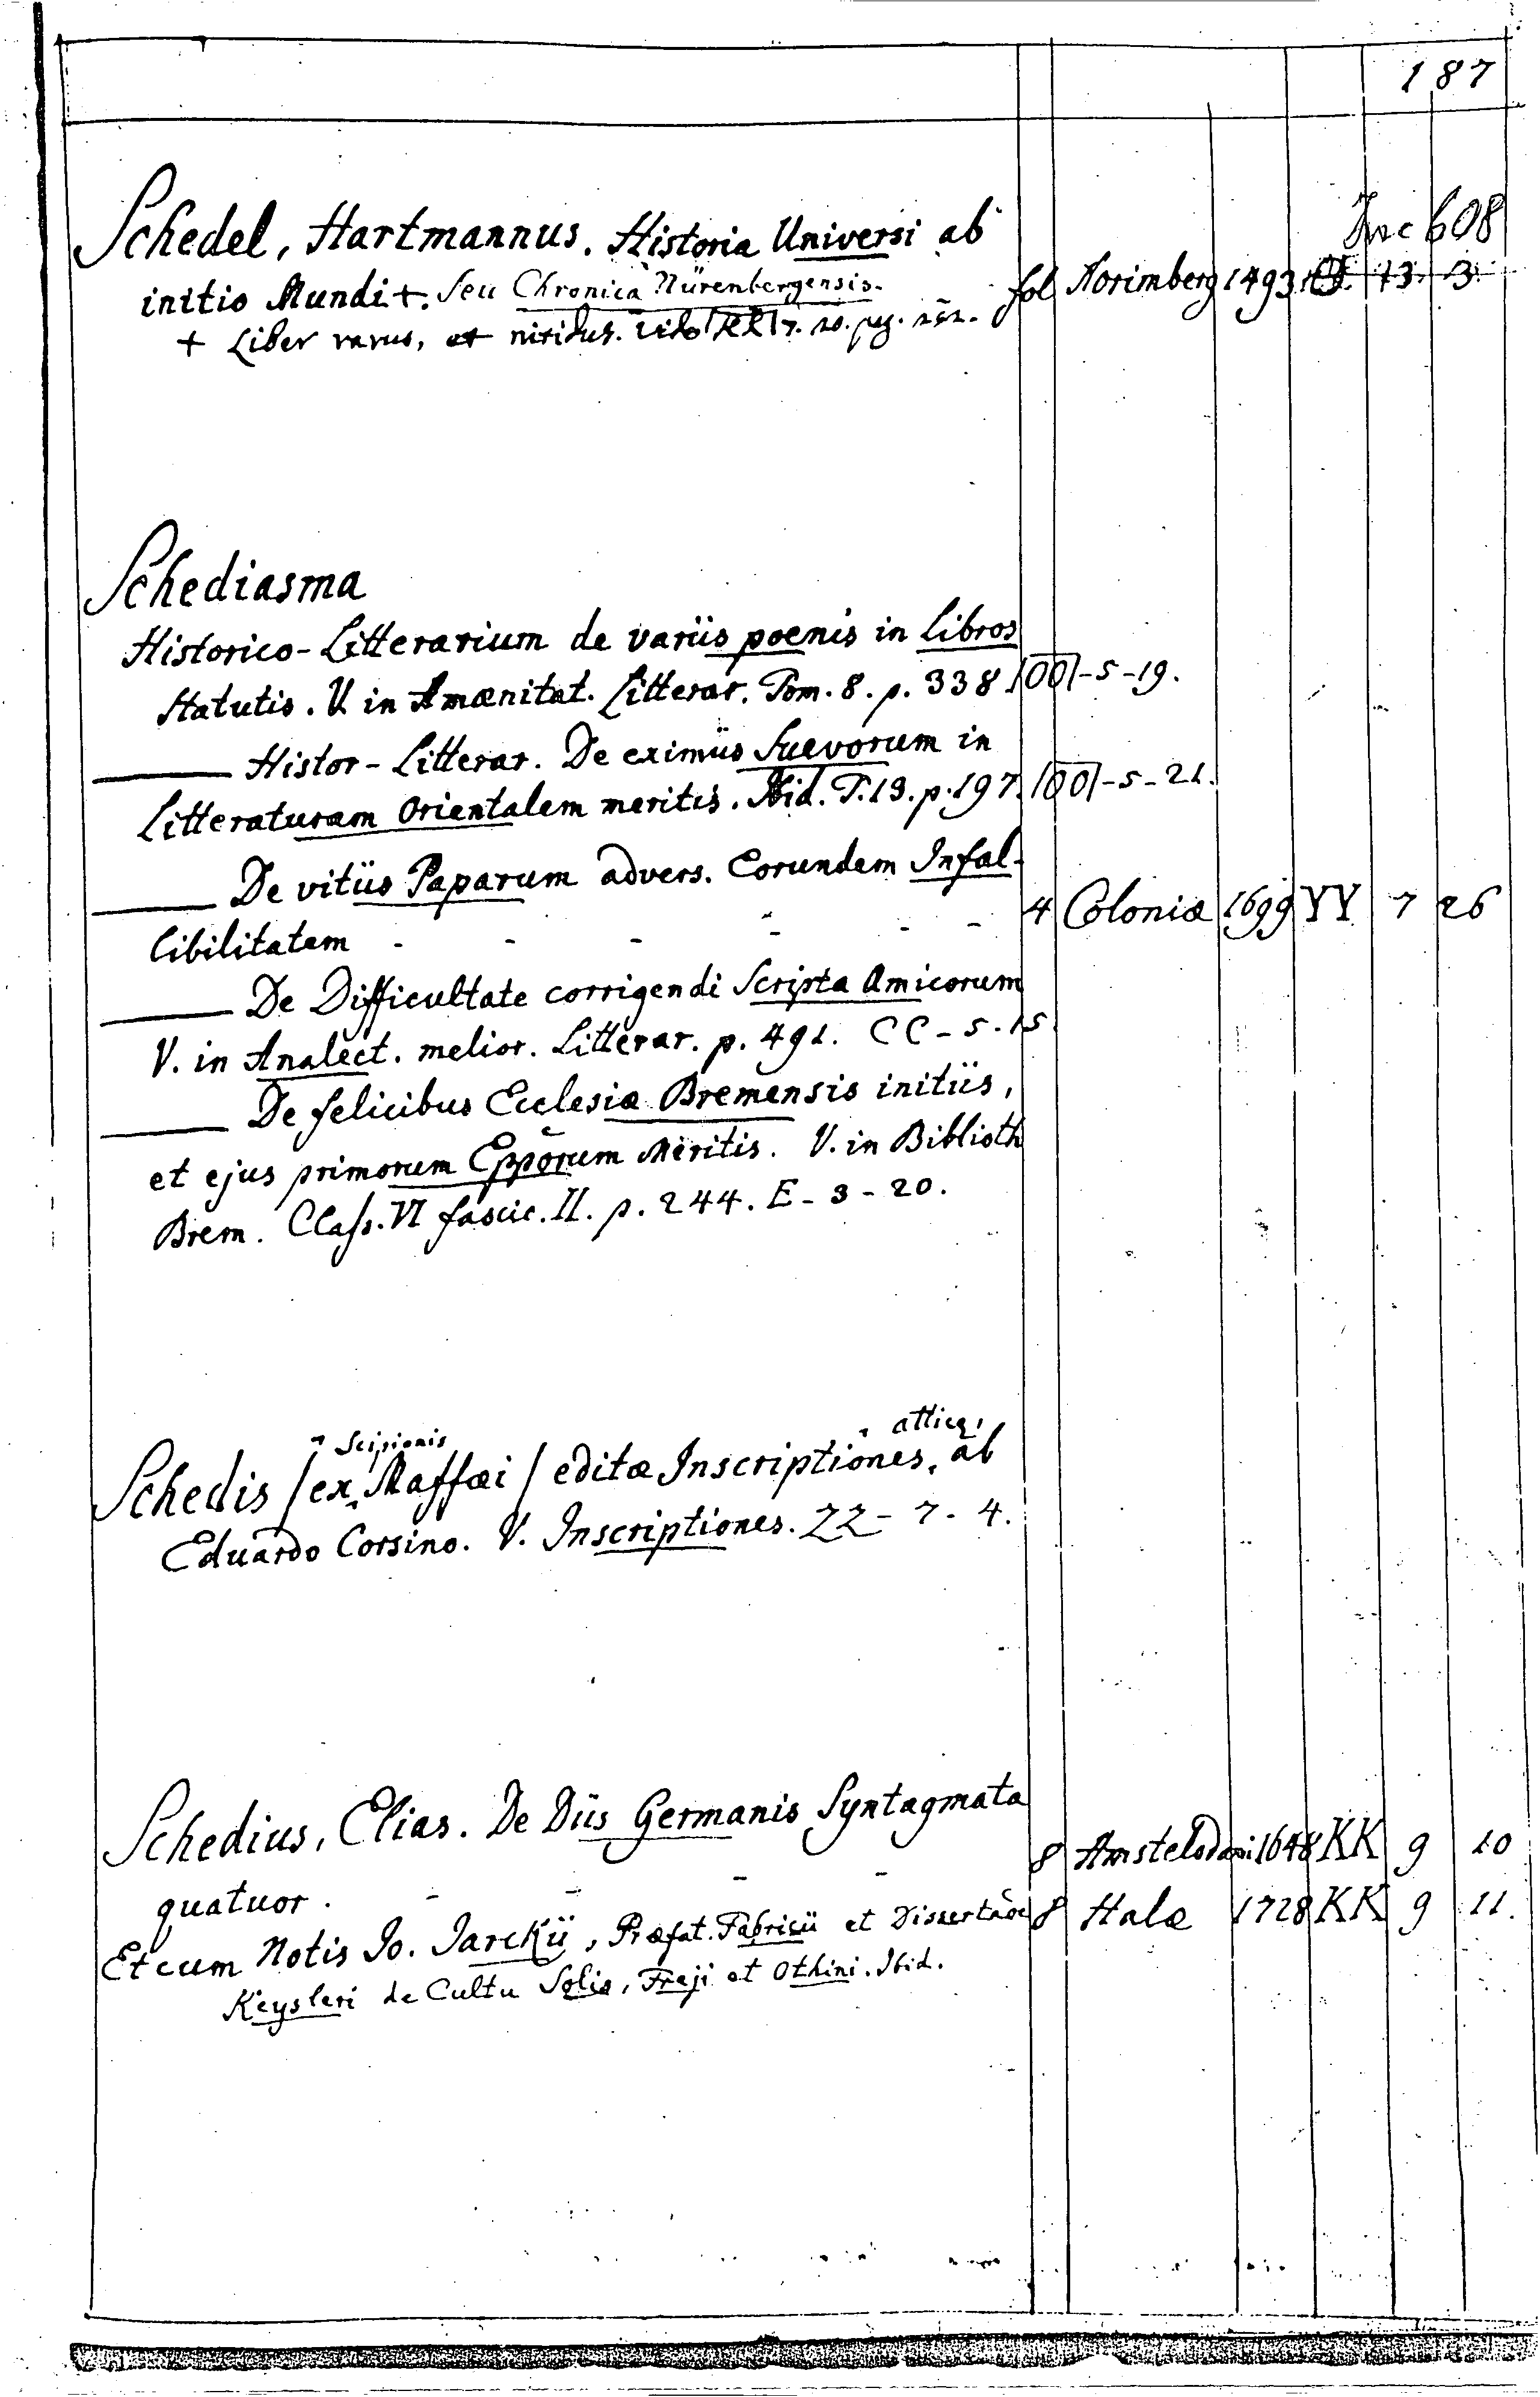 187
Schedel, Hartmannus. Historia Universi ab
Inc 608
initio Mundi +. Seu Chronica Nürenbergensis. fol Norimberg 1493 13. 3.
+ Liber rarus, et nitidus. vide 7. 20. pag.
Schediasma
Historico-Litterarium de variis poenis in Libros
statutis. V. in Amænitat. Litterar. Tom. 8. p. 338 |OO|-5-19.
——— Histor-Litterar. De eximiis Suevorum in
Litteraturam Orientalem meritis. Ibid. T. 13. p. 197. |OO|-5-21.
——— De vitiis Paparum advers. Eorundem Infal-
libilitatem - - - - - - 4 Coloniæ 1699 YY 7 26
——— De Difficultate corrigendi Scripta Amicorum
V. in Analect. melior. Litterar. p. 491. CC-5.15
——— De felicibus Ecclesiæ Bremensis initiis,
et ejus primorum Epporum Meritis. V. in Biblioth
Brem. Class. VI fascic. II. p. 244. E-3-20.
Scipionis atticæ,
Schedis / ex Maffæi / editæ Inscriptiones, ab
Eduardo Corsino. V. Inscriptiones. ZZ-7-4.
Schedius, Elias. De Diis Germanis Syntagmata
quatuor. - - - - 8 Amstelodami 1648 KK 9 10
Et cum Notis Jo. Jarckii, Præfat. Fabricii et Dissertaõe 8 Halæ 1728 KK 9 11.
Keysleri de Cultu Solis, Freji et Othini. Ibid.